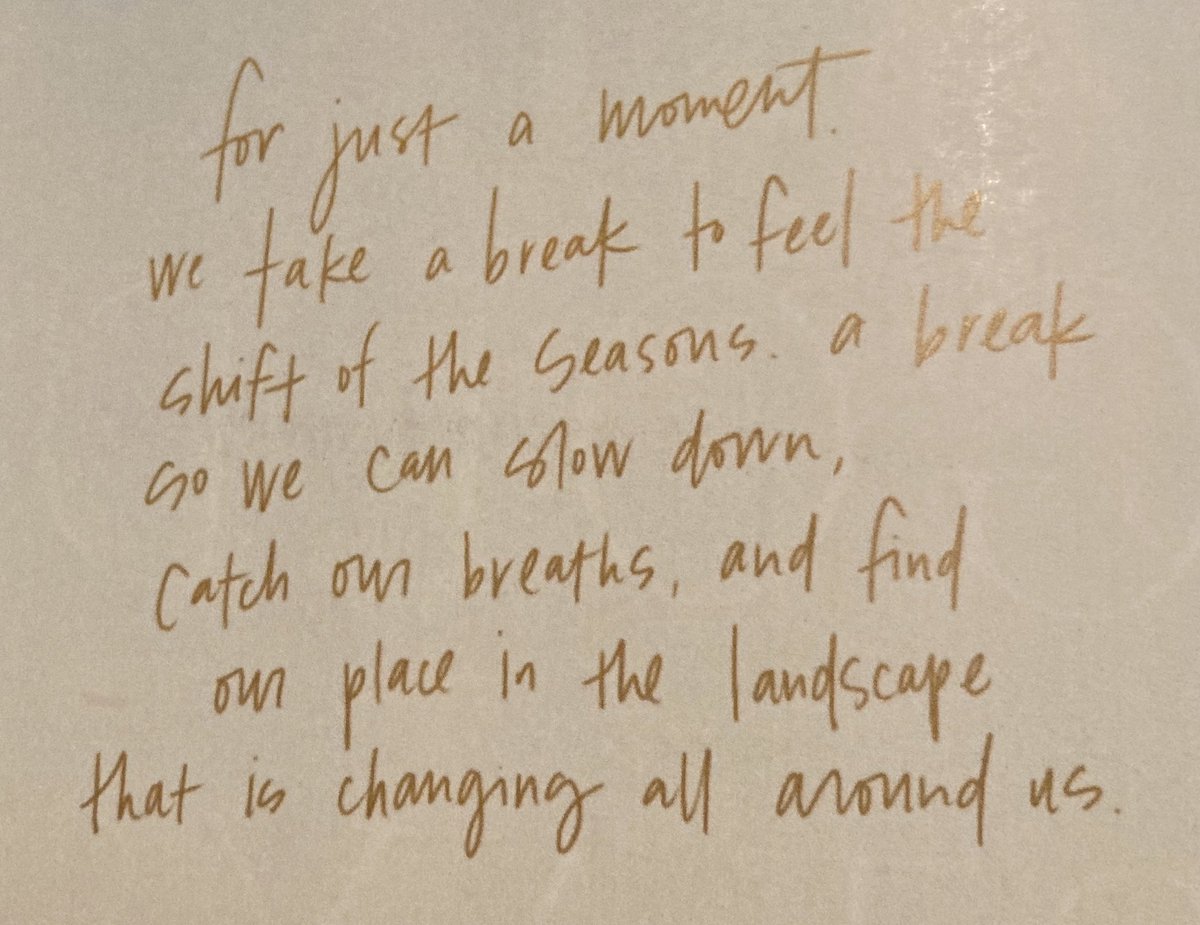 for just a moment.
we take a break to feel the
shift of the seasons. a break
so we can slow down,
catch our breaths, and find
our place in the landscape
that is changing all around us.